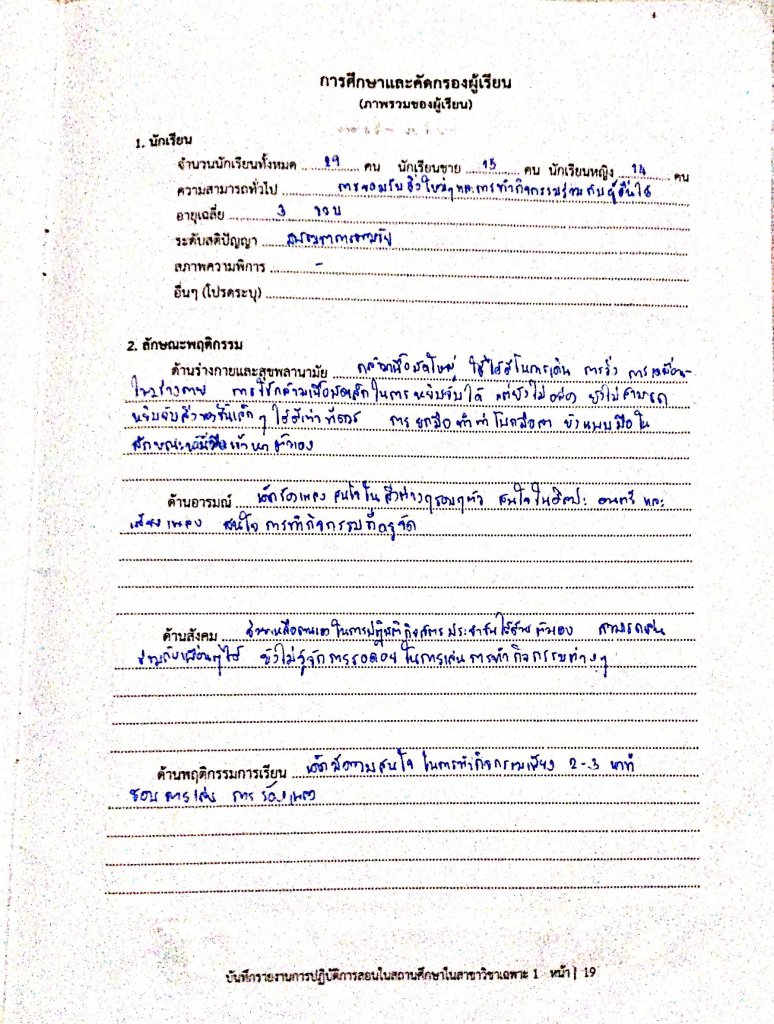 การศึกษาและคัดกรองผู้เรียน
(ภาพรวมของผู้เรียน)
1. นักเรียน
จำนวนนักเรียนทั้งหมด 29 คน นักเรียนชาย 15 คน นักเรียนหญิง 14 คน
ความสามารถทั่วไป การยอมรับสิ่งใหม่ๆและการทำกิจกรรมร่วมกับผู้อื่นได้
อายุเฉลี่ย 3 ขวบ
ระดับสติปัญญา
สภาพความพิการ -
อื่นๆ (โปรดระบุ)
2. ลักษณะพฤติกรรม
ด้านร่างกายและสุขพลานามัย กล้ามเนื้อมัดใหญ่ ใช้ได้ดีในการเดิน การวิ่ง การเคลื่อน-
ไหวร่างกาย การใช้กล้ามเนื้อมัดเล็กในการหยิบจับได้ แต่ยังไม่ ยังไม่สามารถ
หยิบจับสิ่งของชิ้นเล็กๆ ได้ดีเท่าที่ควร การยกมือทำท่าโบกมือลา ยังแบมือใน
ลักษณะหันมือเข้าหาตัวเอง
ด้านอารมณ์ เด็กร้องเพลง สนใจในสิ่งต่างๆรอบๆตัว สนใจในศิลปะ ดนตรี และ
เสียงเพลง สนใจการทำกิจกรรมที่ครูจัด
ด้านสังคม ช่วยเหลือตนเองในการปฏิบัติกิจวัตรประจำวันได้ด้วยตัวเอง สามารถเล่น
ร่วมกับเพื่อนๆได้ ยังไม่รู้จักการรอคอยในการเล่น การทำกิจกรรมต่างๆ
ด้านพฤติกรรมการเรียน เด็กมีความสนใจในการทำกิจกรรมเพียง 2-3 นาที
ชอบการเล่น การร้องเพลง
บันทึกรายงานการปฏิบัติการสอนในสถานศึกษาในสาขาวิชาเฉพาะ 1 หน้า | 19